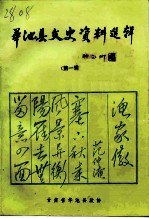 2808
華池县文史资料选辑
(第一辑)
渔家傲
范仲淹
塞下秋来
风景异衡
阳雁去无
留意四面
甘肃省华池县政协